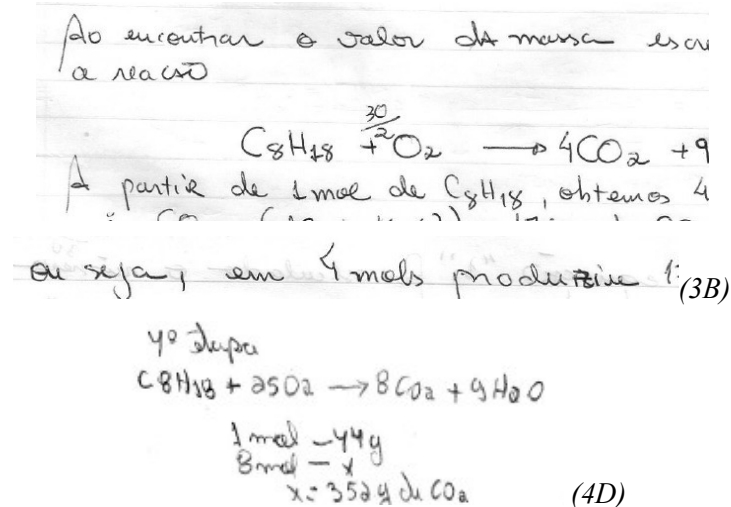 Ao encontrar o valor da massa escre
a reacão
30
C8H18 + 2 O2 → 4CO2 + 9
A partir de 1 mol de C8H18, obtemos 4
ou seja, em 4 mols produzin 1:
(3B)
4º Etapa
C8H18 + 25O2 → 8CO2 + 9H2O
1 mol – 44g
8 mol – x
x = 352g de CO2
(4D)